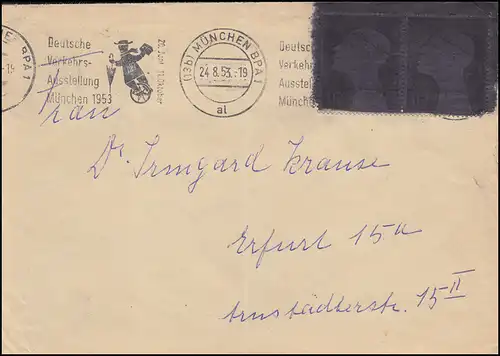 MÜNCHEN BPA 1
Deutsche
Verkehrs-
Ausstellung
München 1953
20. Juni 11. Oktober
(13b) MÜNCHEN BPA 1
24.8.53.-19
al
Frau
Dr. Irmgard Krause
Erfurt 15a
Arnstädterstr. 15 II